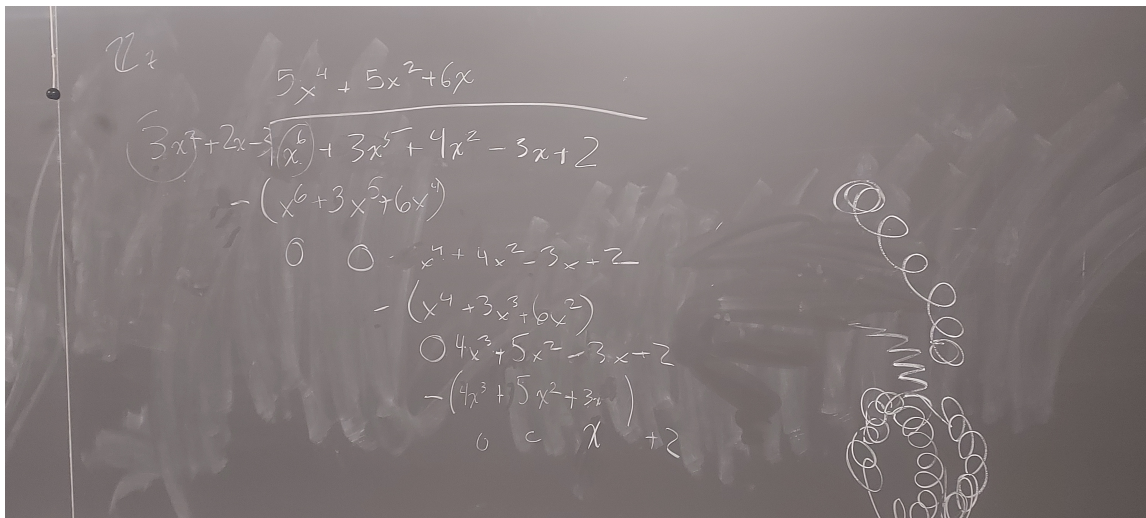 ℤ₇
5x⁴ + 5x² + 6x
3x² + 2x - 3 | x⁶ + 3x⁵ + 4x² - 3x + 2
- (x⁶ + 3x⁵ + 6x⁴)
0 0 x⁴ + 4x² - 3x + 2
- (x⁴ + 3x³ + 6x²)
0 4x³ + 5x² - 3x + 2
- (4x³ + 5x² + 3x)
0 0 x + 2